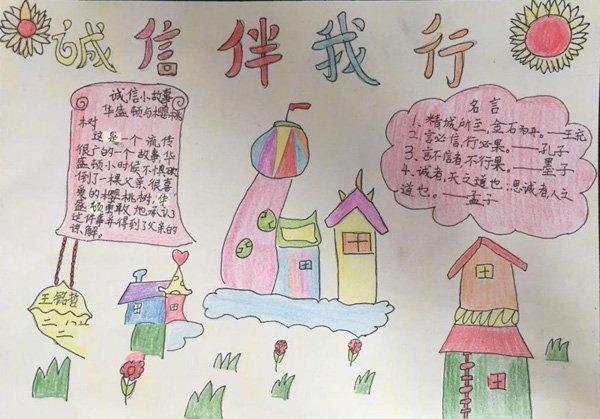 诚信伴我行
诚信小故事
华盛顿与樱桃
树
这是一个流传
很广的一个故事华
盛顿小时候不惧砍
倒了一棵父亲很喜
爱的樱桃树，华
盛顿勇敢地承认了
这件事并得到了父亲的
谅解。
名言
1、精诚所至，金石为开。——王充
2、言必信，行必果。——孔子
3、言不信者不行果。——墨子
4、诚者，天之道也；思诚者人之
道也。——孟子